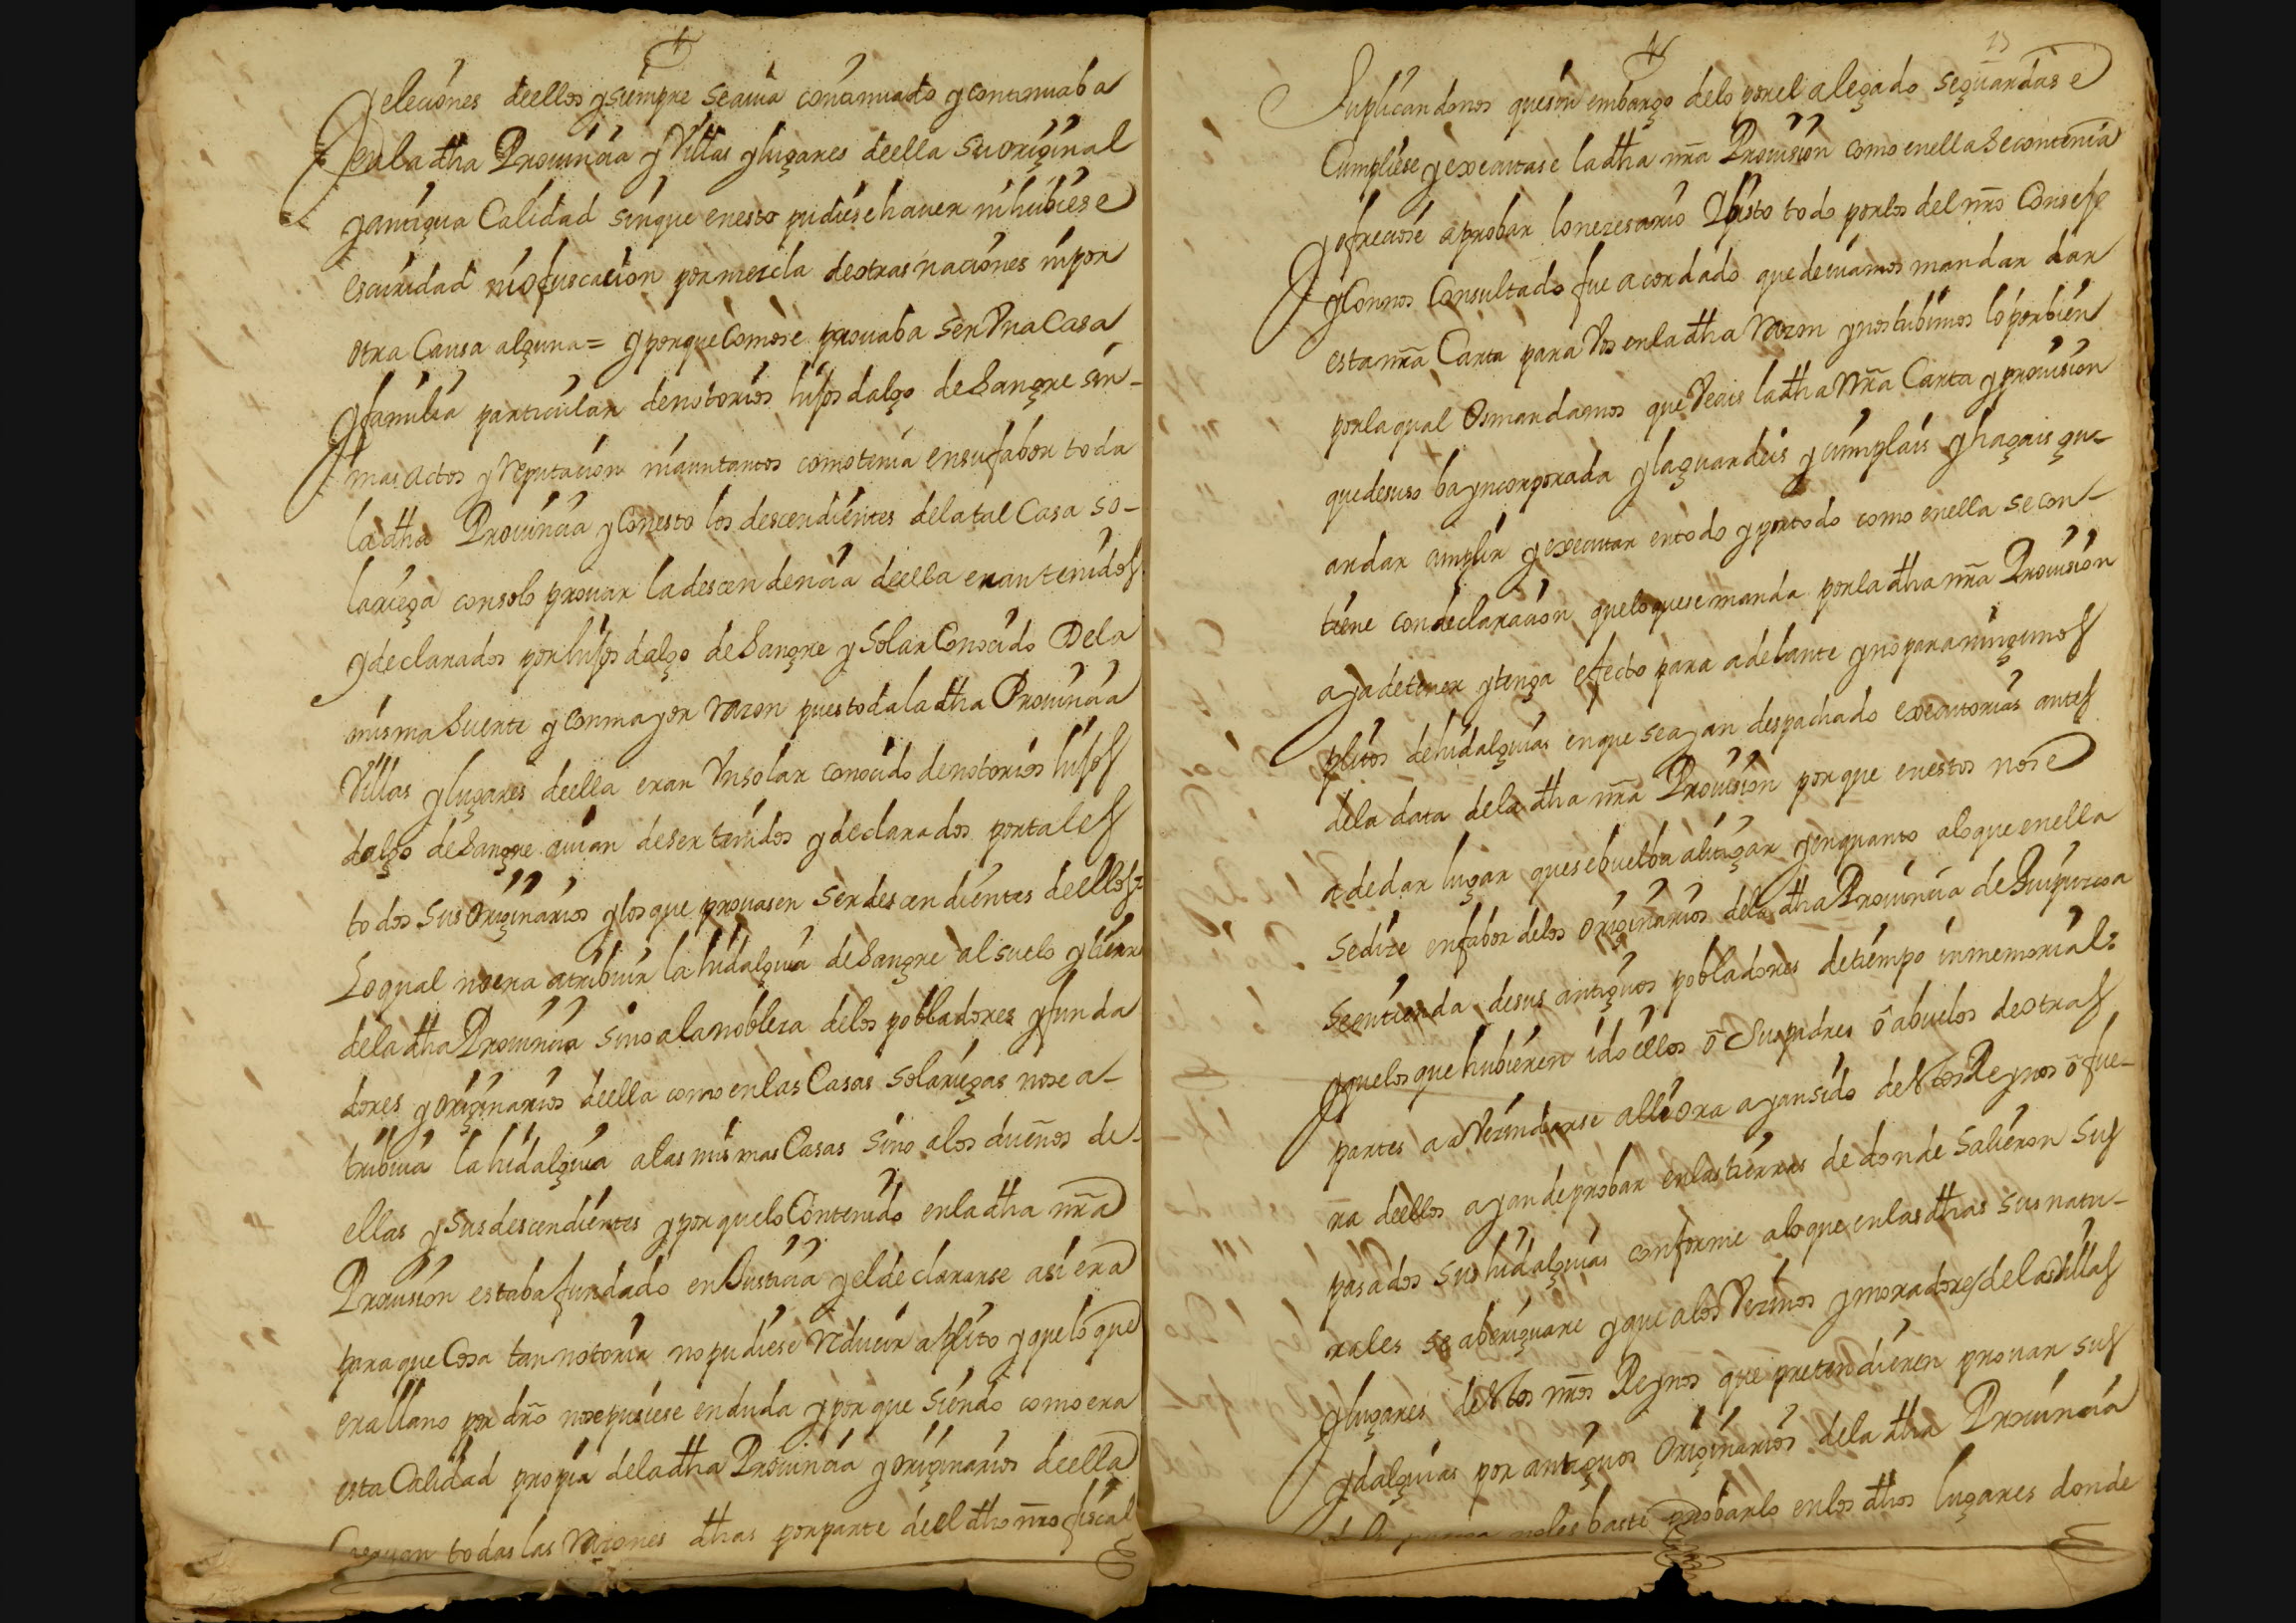 y eleciones deellos y siempre se auia continuado y continuaba
en la dha Prouincia y Villas y lugares deella su original
y antigua Calidad sin que en esto pudiese hauer ni hubiese
escuridad ni ofuscacion por mezcla de otras naciones ni por
otra Causa alguna = y porque como se prouaba ser Vna Casa
y familia particular de notorios hijos dalgo de Sangre sin
mas actos y Reputacion ni auntantos como tenia en su fabor toda
la dha Prouincia y Con esto los descendientes de la tal Casa so-
lariega con solo prouar la descendencia deella eran tenidos
y declarados por hijos dalgo de Sangre y Solar Conocido De la
misma Suerte y con mayor Razon pues toda la dha Prouincia
Villas y lugares deella eran Vn solar conocido de notorios hijos
dalgo de Sangre auian de ser tenidos y declarados por tales
todos sus originarios y los que prouasen ser descendientes deellos =
Lo qual no era atribuir la hidalguia de Sangre al suelo y tierra
de la dha Prouincia sino a la nobleza de los pobladores y funda
dores y originarios deella como en las Casas solariegas no se a-
tribuia la hidalguia a las mismas Casas sino a los dueños de-
ellas y sus descendientes y porque lo Contenido en la dha nr̃a
Prouision estaba fundado en Justicia y el declararse asi era
para que Cosa tan notoria no pudiese Reducir a plito y que lo que
era llano por dr̃o no se pusiese en duda y porque siendo como era
esta Calidad propia de la dha Prouincia y originarios deella
todas las Razones dhas por parte de el dho nr̃o fiscal
13
Suplicandonos que sin embargo de lo por el alegado se guardase
Cumpliese y executase la dha nr̃a Prouision como en ella Se contenia
y ofreciose a probar lo nezesario Visto todo por los del nr̃o Consejo
y Con nos Consultado fue acordado que deuiamos mandar dar
esta nr̃a Carta para Vos en la dha Razon y nos tubimos lo por bien
por la qual Os mandamos que Veais la dha Nr̃a Carta y prouision
que de suso ba yncorporada y la guardeis y cumplais y hagais gu-
ardar cumplir y executar en todo y por todo como en ella se con-
tiene con declaracion que lo que se manda por la dha nr̃a Prouision
aya de tener y tenga efecto para adelante y no para ningunos
plitos de hidalguias en que se ayan despachado executorias antes
de la data de la dha nr̃a Prouision porque en estos no se
a de dar lugar que se buelba a litigar y en quanto a lo que en ella
se dize en fabor de los originarios de la dha Prouincia de Guipuzcoa
se entienda de sus antiguos pobladores de tiempo inmemorial =
y que los que hubieren ido ellos ō Sus padres ō abuelos de otras
partes a aVezindarse alli ora ayan sido destos Reynos ō fue-
ra deellos ayan de probar en las tierras de donde Salieron Sus
pasados sus hidalguias conforme a lo que en las dhas sus natu-
rales se aberiguare y que a los Vezinos y moradores de las Villas
y lugares destos nr̃os Reynos que pretendieren prouar sus
ydalguias por antiguos originarios de la dha Prouincia
no les baste probarlo en los dhos lugares donde